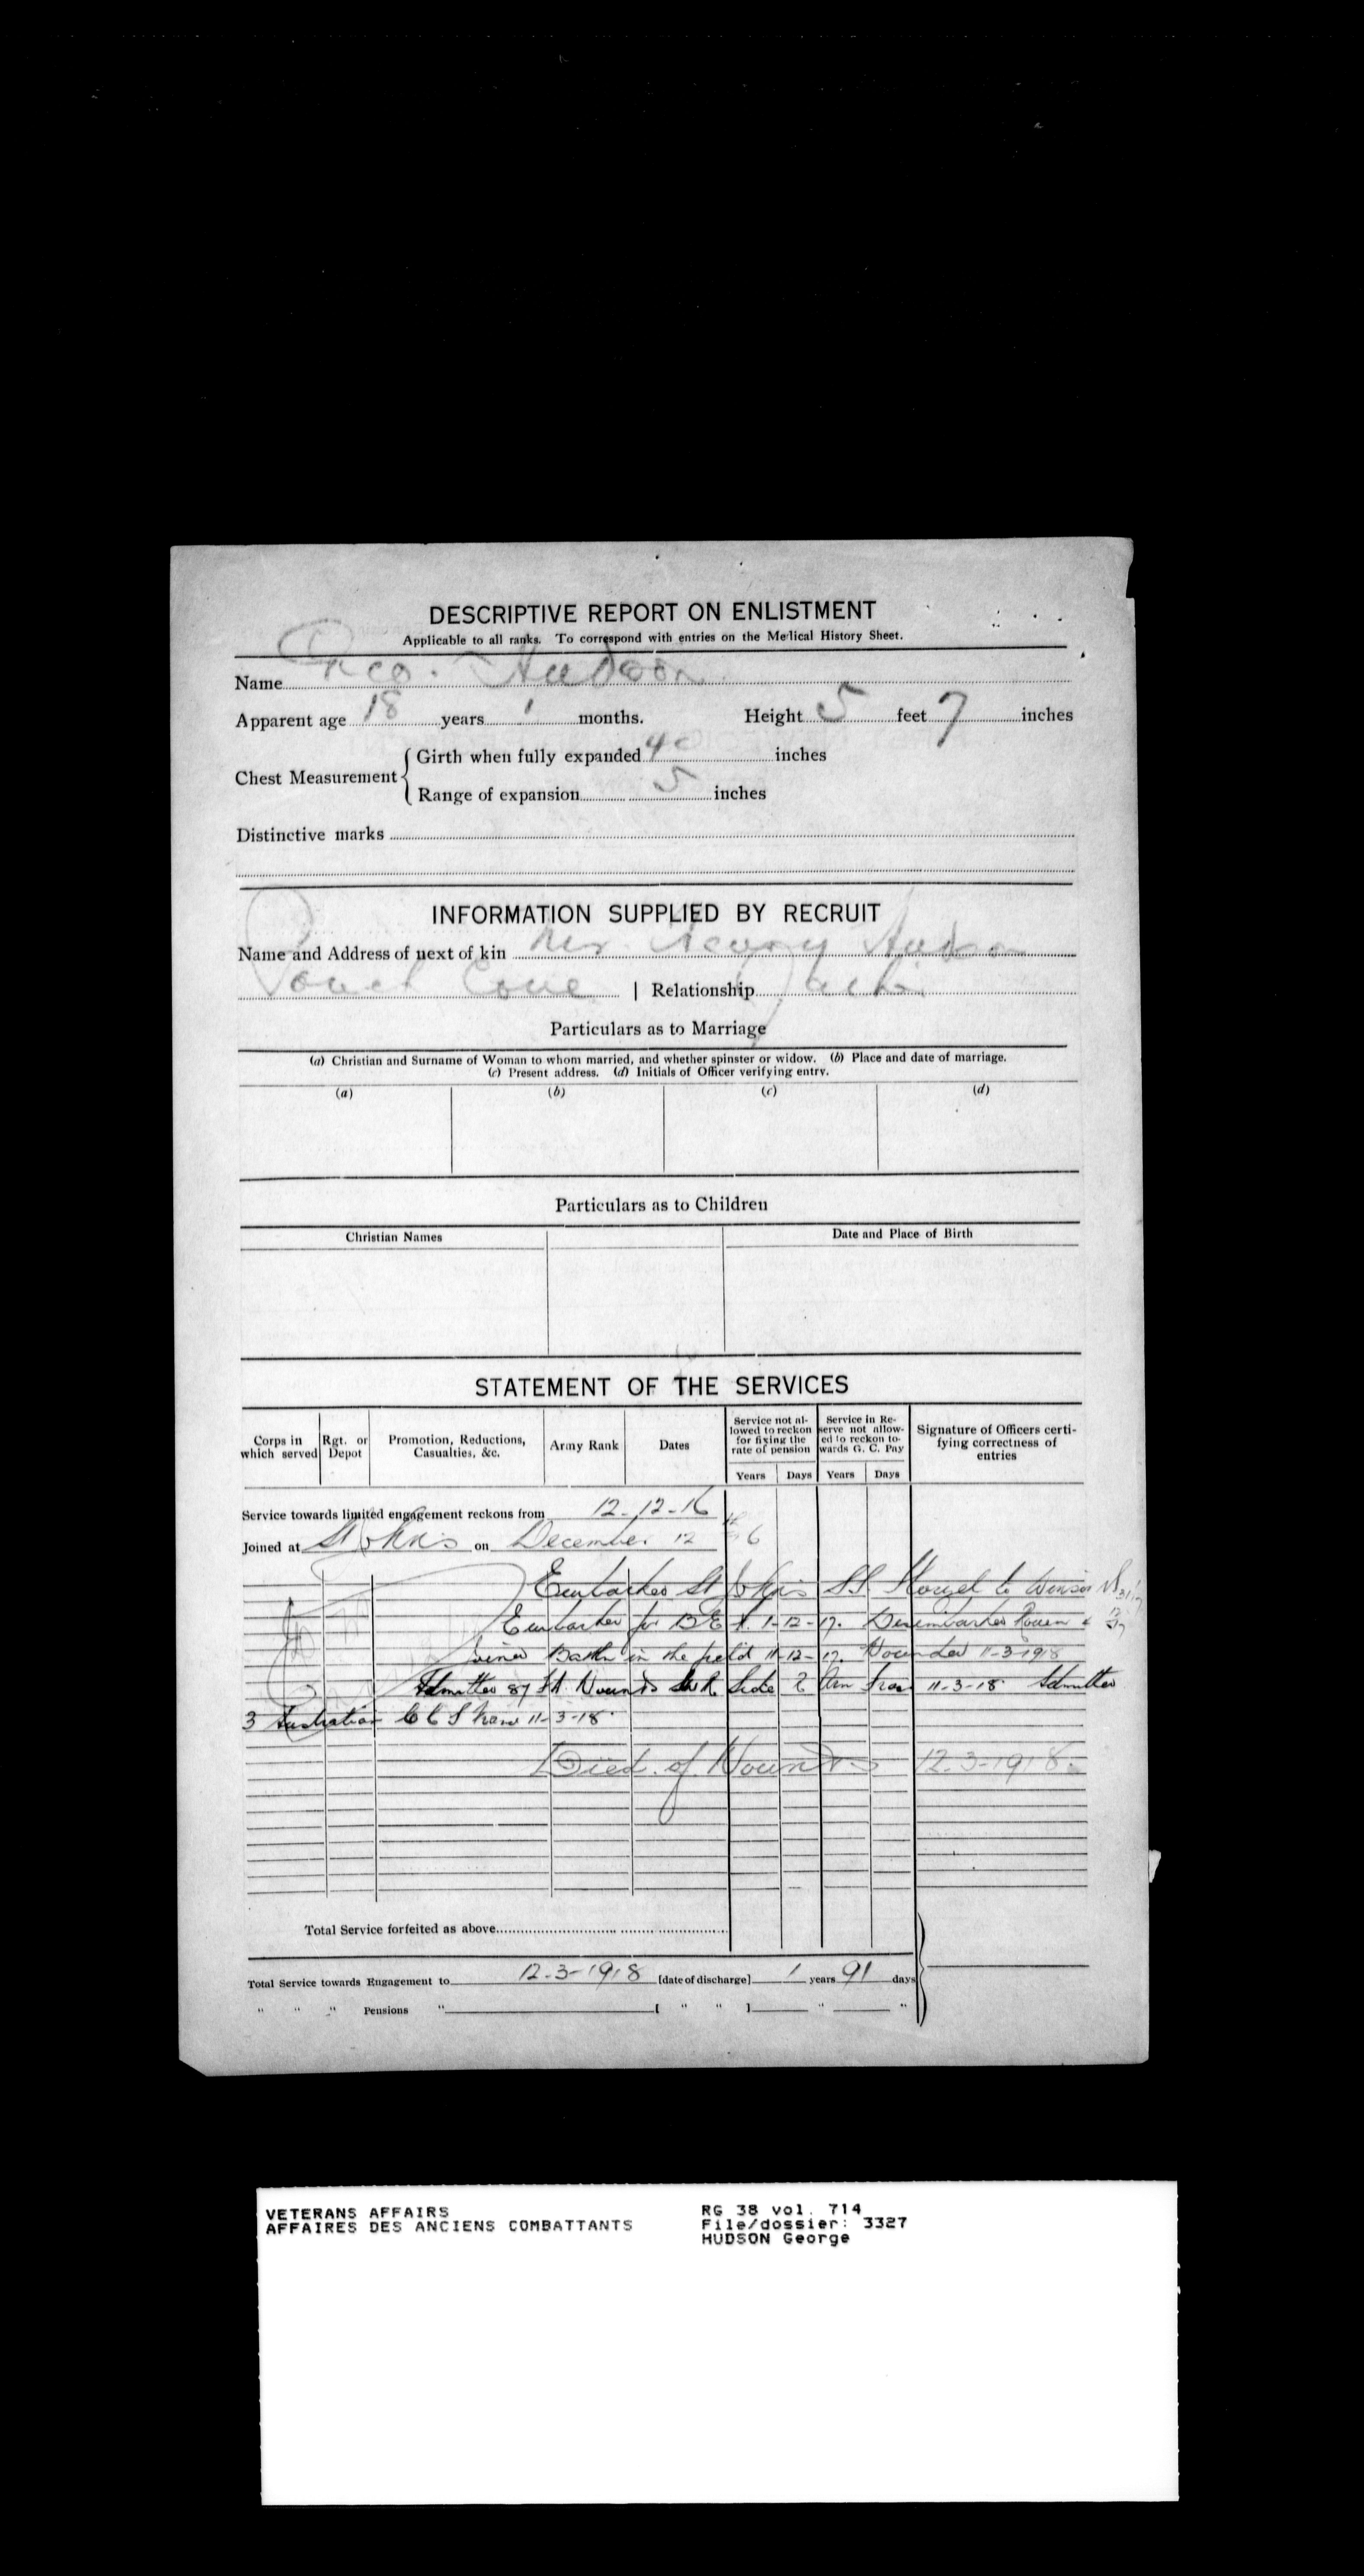 DESCRIPTIVE REPORT ON ENLISTMENT
Applicable to all ranks. To correspond with entries on the Medical History Sheet.
Name Geo. Hudson
Apparent age 18 years 1 months. Height 5 feet 7 inches
Chest Measurement { Girth when fully expanded 40 inches
Range of expansion 5 inches
Distinctive marks
INFORMATION SUPPLIED BY RECRUIT
Name and Address of next of kin Mr. Henry Hudson
Pouch Cove | Relationship Father
Particulars as to Marriage
(a) Christian and Surname of Woman to whom married, and whether spinster or widow. (b) Place and date of marriage.
(c) Present address. (d) Initials of Officer verifying entry.
(a) (b) (c) (d)
Particulars as to Children
Christian Names Date and Place of Birth
STATEMENT OF THE SERVICES
Corps in which served Rgt. or Depot Promotion, Reductions, Casualties, &c. Army Rank Dates Service not allowed to reckon for fixing the rate of pension Service in Reserve not allowed to reckon towards G. C. Pay Signature of Officers certifying correctness of entries
Years Days Years Days
Service towards limited engagement reckons from 12-12-16
Joined at St Johns on December 12
Embarked St Johns S.S. to Windsor
Embarked for B.E.F. 1-12-17. Disembarked Rouen
Joined Battn in the field 11-12-17. Wounded 11-3-1918
Admitted 87 Wounds Side & Arm 11-3-18 Admitted
3 Australian C C S 11-3-18
Died of Wounds 12-3-1918.
Total Service forfeited as above
Total Service towards Engagement to 12-3-1918 [date of discharge] 1 years 91 days
" " " Pensions " [ " " ] " "
VETERANS AFFAIRS RG 38 vol. 714
AFFAIRES DES ANCIENS COMBATTANTS File/dossier: 3327
HUDSON George